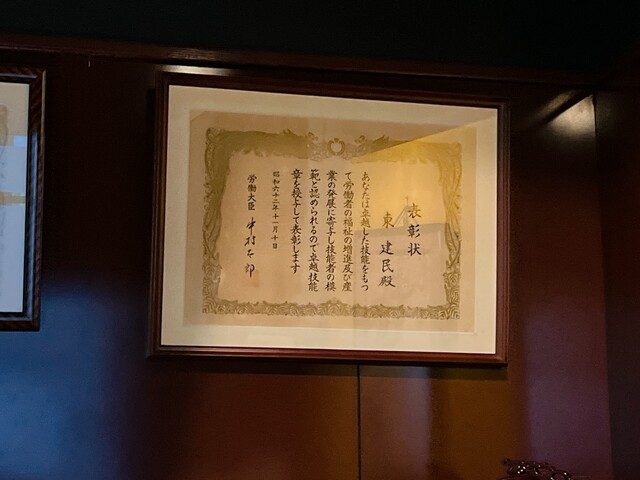 表彰状
東建民殿
あなたは卓越した技能をもつ
て労働者の福祉の増進及び産
業の発展に寄与し技能者の模
範と認められるので卓越技能
章を授与して表彰します
昭和六十二年十一月十日
労働大臣 中村太郎